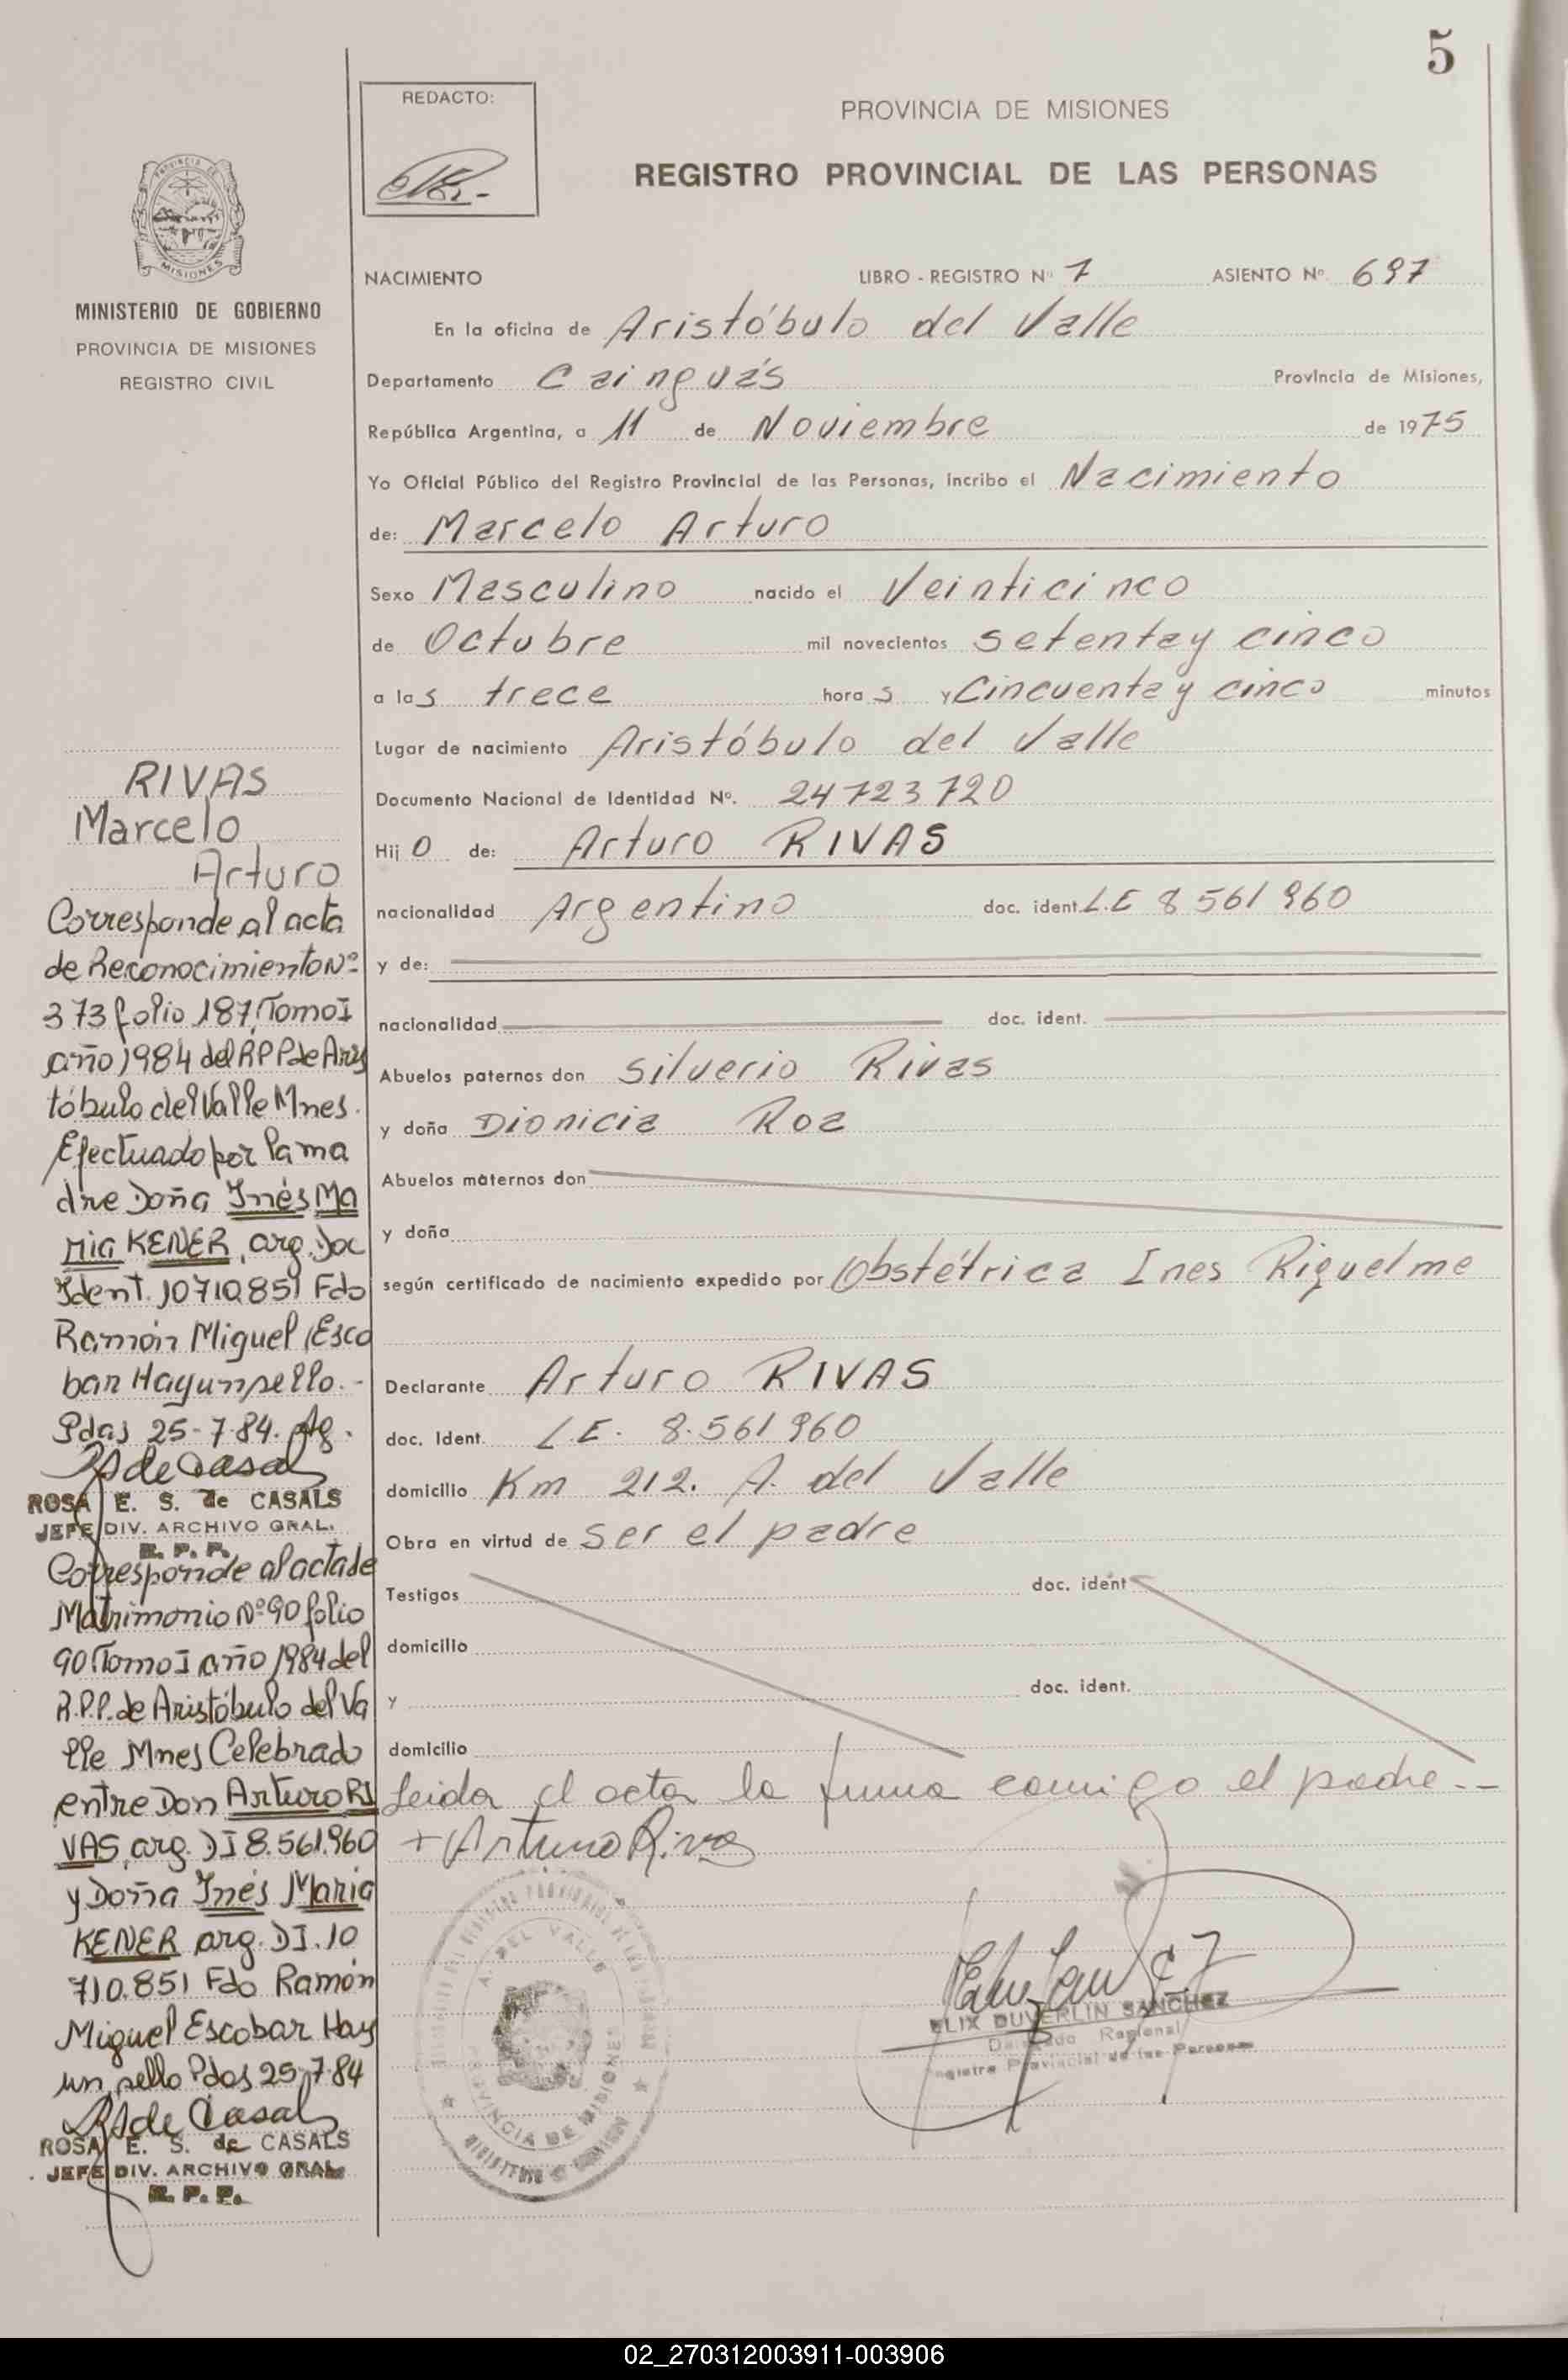 5
REDACTO:
PROVINCIA DE MISIONES
REGISTRO PROVINCIAL DE LAS PERSONAS
PROVINCIA DE
MISIONES
MINISTERIO DE GOBIERNO
PROVINCIA DE MISIONES
REGISTRO CIVIL
NACIMIENTO LIBRO - REGISTRO Nº 7 ASIENTO Nº 697
En la oficina de Aristóbulo del Valle
Departamento Cainguás Provincia de Misiones,
República Argentina, a 11 de Noviembre de 1975
Yo Oficial Público del Registro Provincial de las Personas, incribo el Nacimiento
de: Marcelo Arturo
Sexo Masculino nacido el Veinticinco
de Octubre mil novecientos setenta y cinco
a las trece horas y Cincuenta y cinco minutos
Lugar de nacimiento Aristóbulo del Valle
Documento Nacional de Identidad Nº. 24723720
Hijo de: Arturo RIVAS
nacionalidad Argentino doc. ident. L.E 8561960
y de:
nacionalidad doc. ident.
Abuelos paternos don Silverio Rivas
y doña Dionicia Roa
Abuelos maternos don
y doña
según certificado de nacimiento expedido por Obstétrica Ines Riquelme
Declarante Arturo RIVAS
doc. Ident. L.E. 8.561960
domicilio Km 212. A. del Valle
Obra en virtud de ser el padre
Testigos doc. ident
domicilio
y doc. ident.
domicilio
Leida el acta la firma comigo el padre.--
+ Arturo Rivas
A. DEL VALLE
PROVINCIA DE MISIONES
ELIX DUVERLIN SANCHEZ
Delegado Regional
Registro Provincial de las Personas
RIVAS
Marcelo
Arturo
Corresponde al acta
de Reconocimiento Nº
373 folio 187, Tomo I
año 1984 del R.P.P. de Aris
tóbulo del Valle Mnes.
Efectuado por la ma
dre Doña Inés Ma
ria KENER, arg. Doc
Ident. 10710851 Fdo
Ramón Miguel Esco
bar Hay un sello.-
Pdas 25-7-84. Ag.
RSdeCasals
ROSA E. S. de CASALS
JEFE DIV. ARCHIVO GRAL.
R. P. P.
Corresponde al acta de
Matrimonio Nº 90 folio
90. Tomo I año 1984 del
R.P.P. de Aristóbulo del Va
lle Mnes Celebrado
entre Don Arturo RI
VAS, arg. DI 8.561.960
y Doña Inés Maria
KENER arg. DI. 10
710.851 Fdo Ramón
Miguel Escobar Hay
un sello Pdas 25-7-84
RSde Casals
ROSA E. S. de CASALS
JEFE DIV. ARCHIVO GRAL
R. P. P.
02_270312003911-003906